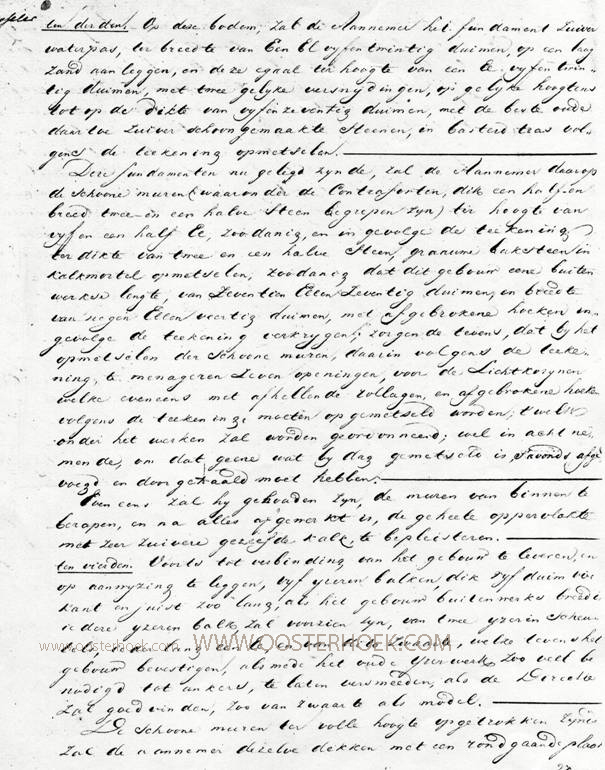 ten derden. Op dese bodem; zal de Aannemer het fundament zuiver
waterpas, ter breedte van Een El vyfentwintig duimen, op een laag
zand aanleggen, en deze egaal ter hoogte van een E. vyfentwin-
tig duimen, met twee gelyke versnydingen, op gelyke hoogtens
tot op de dikte van vyfenzeventig duimen, met de beste oude
daartoe zuiver schoongemaakte Steenen, in basterd tras vol-
gens de teekening opmetselen.
Deze fundamenten nu gelegd zynde, zal de Aannemer daarop
de schoone muren (waaronder de Contraforten, dik een half en
breed twee en een halve Steen begrepen zyn) ter hoogte van
vyf en een half El, zoodanig, en in gevolge de teekening
ter dikte van twee en een halve Steen, graauwe baksteen in
kalkmortel opmetselen, zoodanig dat dit gebouw eene buiten
werkse lengte, van Zeventien Ellen Zeventig duimen, en breedte
van negen Ellen veertig duimen, met afgebrokene hoeken in-
gevolge de teekening verkrygen; zorgende tevens, dat by het
opmetselen der Schoone muren, daarin volgens de teeke-
ning, te menageren Zeven openingen, voor de Lichtkozynen
welke eveneens met afhellende rollagen, en afgebrokene hoeken
volgens de teekening moeten opgemetseld worden; 't welk
onder het werken zal worden geordonneerd; wel in acht ne-
mende, om dat geene wat by dag gemetseld is, Savonds afge
voegd en doorgehaald moet hebben.
Eveneens zal hy gehouden zyn, de muren van binnen te
berapen, en na alles afgewerkt is, de geheele oppervlakte
met zeer zuivere gezeefde kalk, te bepleisteren.
ten vierden. Voorts tot verbinding van het gebouw te leveren, en
op aanwyzing te leggen, vyf yzeren balken dik vyf duim vier
kant en juist zoo lang, als het gebouw buitenwerks breed
iedere yzeren balk zal voorzien zyn, van twee yzeren
gebouw bevestigen, alsmede het oude Yzerwerk zoo veel be
nodigd tot ankers, te laten versmeeden, als de Directie
zal goedvinden, zoo van zwaarte als model.
De Schoone muren ter volle hoogte opgetrokken zynde
zal de aannemer dezelve dekken met een rondgaande plaat
www.oosterhoek.com
WWW.OOSTERHOEK.COM